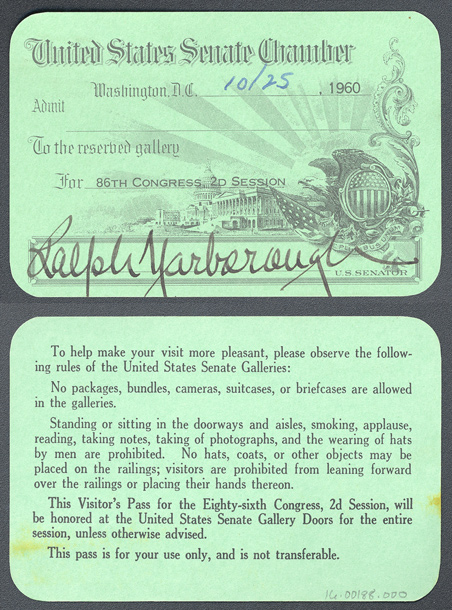 United States Senate Chamber
Washington, D.C. 10/25, 1960
Admit
To the reserved gallery
For 86TH CONGRESS, 2D SESSION
Ralph Yarborough
U.S. SENATOR
To help make your visit more pleasant, please observe the follow-
ing rules of the United States Senate Galleries:
No packages, bundles, cameras, suitcases, or briefcases are allowed
in the galleries.
Standing or sitting in the doorways and aisles, smoking, applause,
reading, taking notes, taking of photographs, and the wearing of hats
by men are prohibited. No hats, coats, or other objects may be
placed on the railings; visitors are prohibited from leaning forward
over the railings or placing their hands thereon.
This Visitor's Pass for the Eighty-sixth Congress, 2d Session, will
be honored at the United States Senate Gallery Doors for the entire
session, unless otherwise advised.
This pass is for your use only, and is not transferable.
16.00188.000